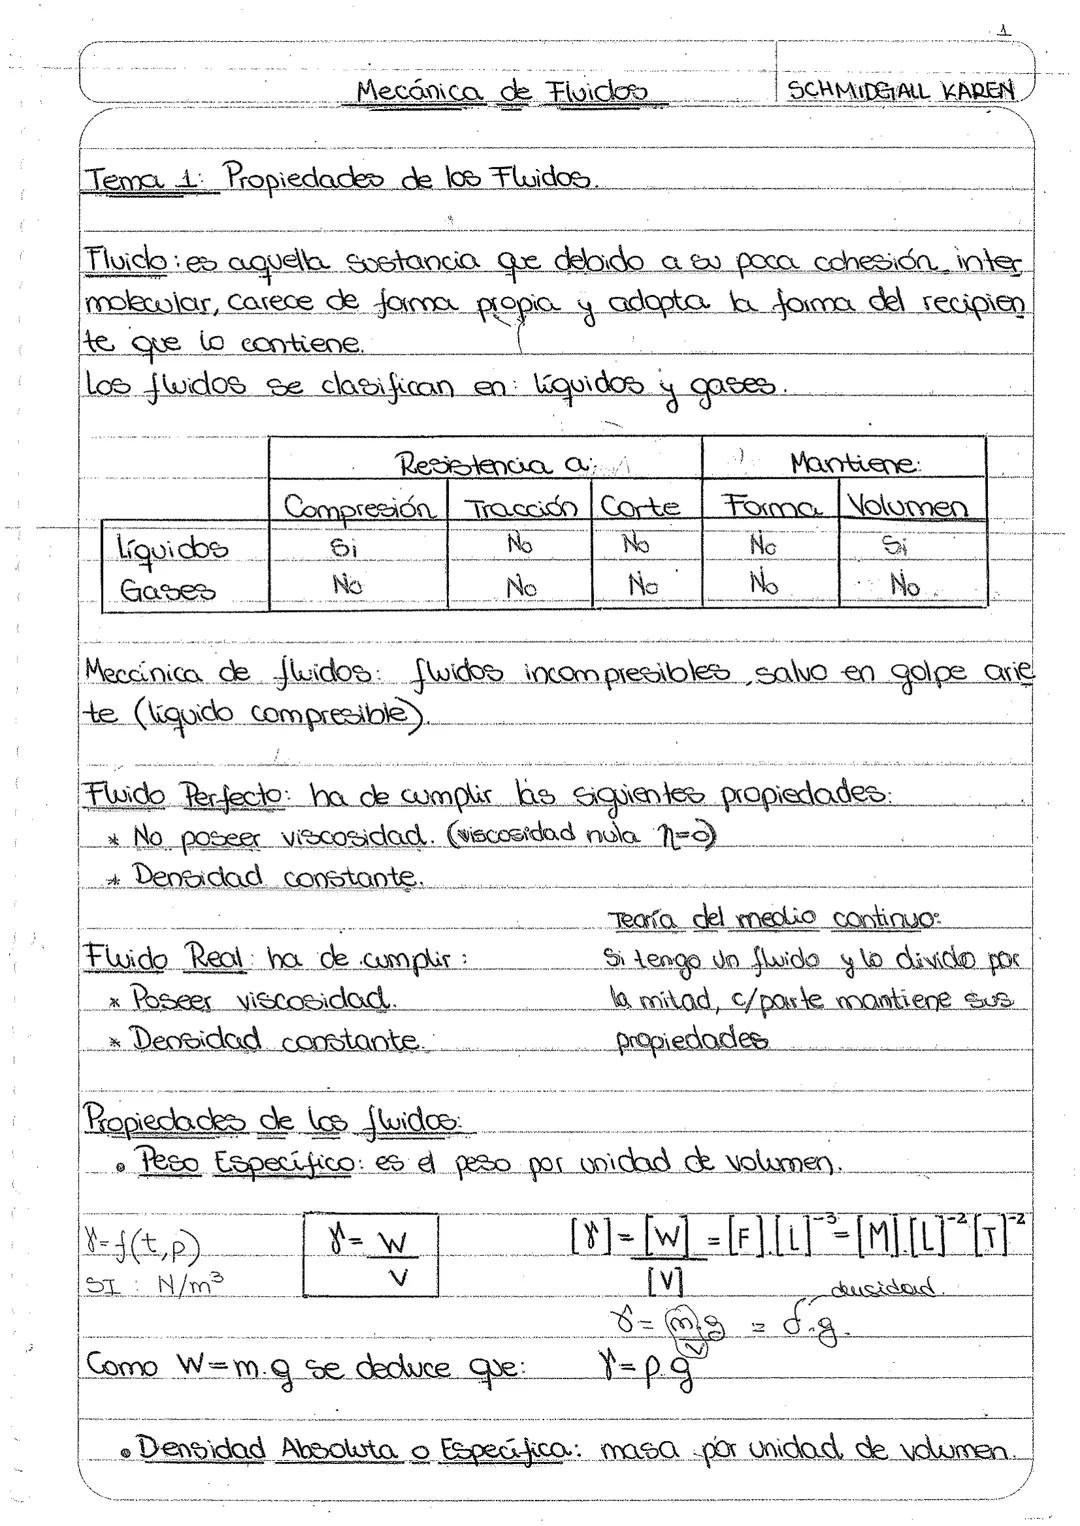 1
Mecánica de Fluidos
SCHMIDGALL KAREN
Tema 1: Propiedades de los Fluidos.
Fluido: es aquella sustancia que debido a su poca cohesión inter
molecular, carece de forma propia y adopta la forma del recipien
te que lo contiene.
Los fluidos se clasifican en: líquidos y gases.
Resistencia a: Mantiene:
Compresión Tracción Corte Forma Volumen
Líquidos Si No No No Si
Gases No No No No No
Mecánica de fluidos: fluidos incompresibles, salvo en golpe arie
te (líquido compresible).
Fluido Perfecto: ha de cumplir las siguientes propiedades:
* No poseer viscosidad. (viscosidad nula η=0)
* Densidad constante.
Fluido Real: ha de cumplir:
* Poseer viscosidad.
* Densidad constante.
Teoría del medio continuo:
Si tengo un fluido y lo divido por
la mitad, c/parte mantiene sus
propiedades
Propiedades de los fluidos:
• Peso Específico: es el peso por unidad de volumen.
γ=f(t,p)
SI: N/m³
γ = W/V
[γ] = [W]/[V] = [F].[L]⁻³ = [M].[L]⁻²[T]⁻²
densidad.
γ = m.g/V = δ.g.
Como W=m.g se deduce que: γ=ρ.g
• Densidad Absoluta o Específica: masa por unidad de volumen.